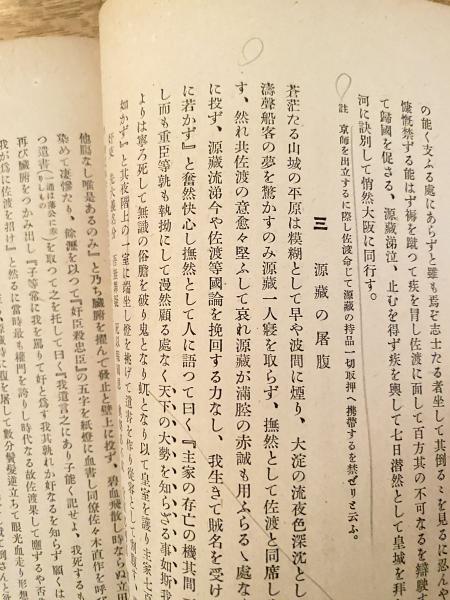 の能く支ふる處にあらずと雖も焉ぞ志士たる者坐して其倒るゝを見るに忍んや
慷慨禁ずる能はず褥を蹴って疾を冒し佐渡に面して百方其の不可なるを辯駁す
て歸國を促さる、源藏涕泣、止むを得ず疾を輿して七日潜然として皇城を拜
河に訣別して悄然大阪に同行す。
註 京師を出立するに際し佐渡命じて源藏の持品一切取押へ携帶するを禁ぜりと云ふ。
三 源藏の屠腹
蒼茫たる山城の平原は模糊として早や波間に煙り、大淀の流夜色深沈とし
濤聲船客の夢を驚かすのみ源藏一人寢を取らず、撫然として佐渡と同席し
す、然れ共佐渡の意愈々堅ふして哀れ源藏が滿腔の赤誠も用ふらるゝ處な
に投ず、源藏流涕今や佐渡等國論を挽回する力なし、我生きて賊名を受け
に若かず』と奮然快心し撫然として人に語つて曰く『主家の存亡の機其間
し而も重臣等孰も執拗にして漫然顧る處なく天下の大勢を知らざる事如斯
よりは寧ろ死して無識の俗膽を破り鬼となり以て皇室を護り主家士百
如かず』と其夜隈上の一室に端坐し燈を挑げて遺書を作り從容として
他腸なし唯是あるのみ』と乃ち臟腑を攫んで發止と壁上に投ず、碧血飛散し時ならぬ立田
染めて凄慘たり、餘瀝を以つて『奸臣殺忠臣』の五字を紙燈に血書し同僚佐々木直作を呼
つ遺書を取つて之を托して曰く『我遺言之にあり子能く記せよ、我死するも
再び臟腑をつかみ出し『子等常に我を罵りて奸と爲す我其孰れか奸なるを知らず願くは
我が爲に佐渡を招け』と然るに當時最も權門を誇りし時代なる故佐渡果して應ずるや否